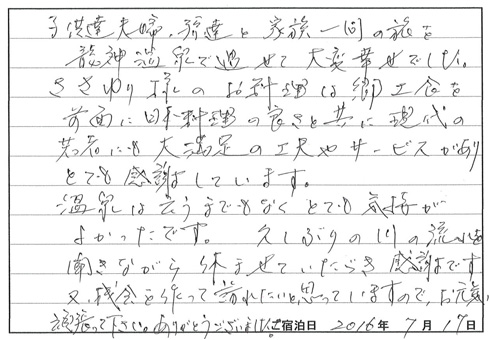 子供達夫婦、孫達と家族一同の旅を
龍神温泉で過せて大変幸せでした。
ささゆり様のお料理は郷土食を
前面に日本料理の良さと共に現代の
若者にも大満足の工夫やサービスがあり
とても感謝しています。
温泉は云うまでもなくとても気持が
よかったです。久しぶりの川の流れを
聞きながら休ませていただき感謝です
又、機会を作って訪れたいと思っていますので、お元気で
頑張って下さい。ありがとうございました。 宿泊日 2016年7月17日